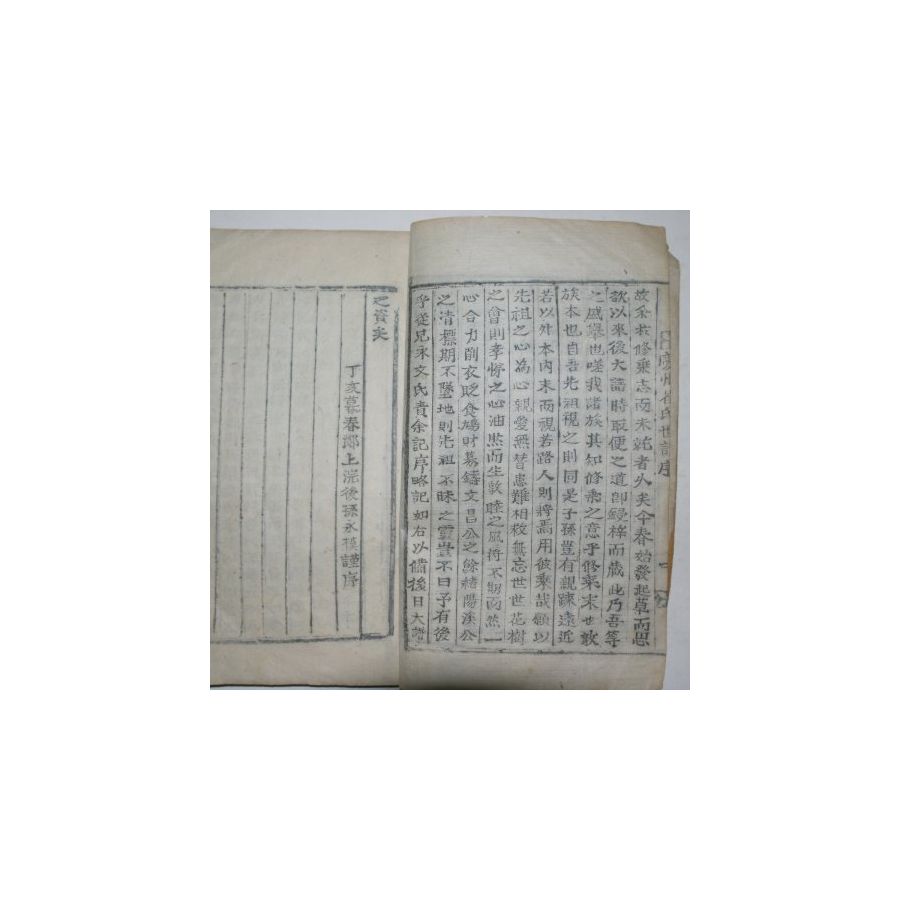 慶州崔氏世譜序
故余救修乘志而未就者久矣今春始發起草而思
歆以來後大譜時取便之道即鋟梓而藏此乃吾等
之盛擧也嗟我諸族其知修乘之意乎修乘末世敦
族本也自吾先祖視之則同是子孫豈有親踈遠近
若以外本內末而視若路人則將焉用彼乘哉願以
先祖之心為心親愛無替患難相救無忘世世花樹
之會則孝悌之心油然而生敦睦之風將不期而然一
心合力削衣貶食鳩財募鑄文昌公之餘緖陽溪公
之清標期不墜地則先祖不昧之靈豈不曰予有後
乎從兄永文氏責余記序略記如右以備後日大譜
之資矣
丁亥暮春上浣後孫永謹序